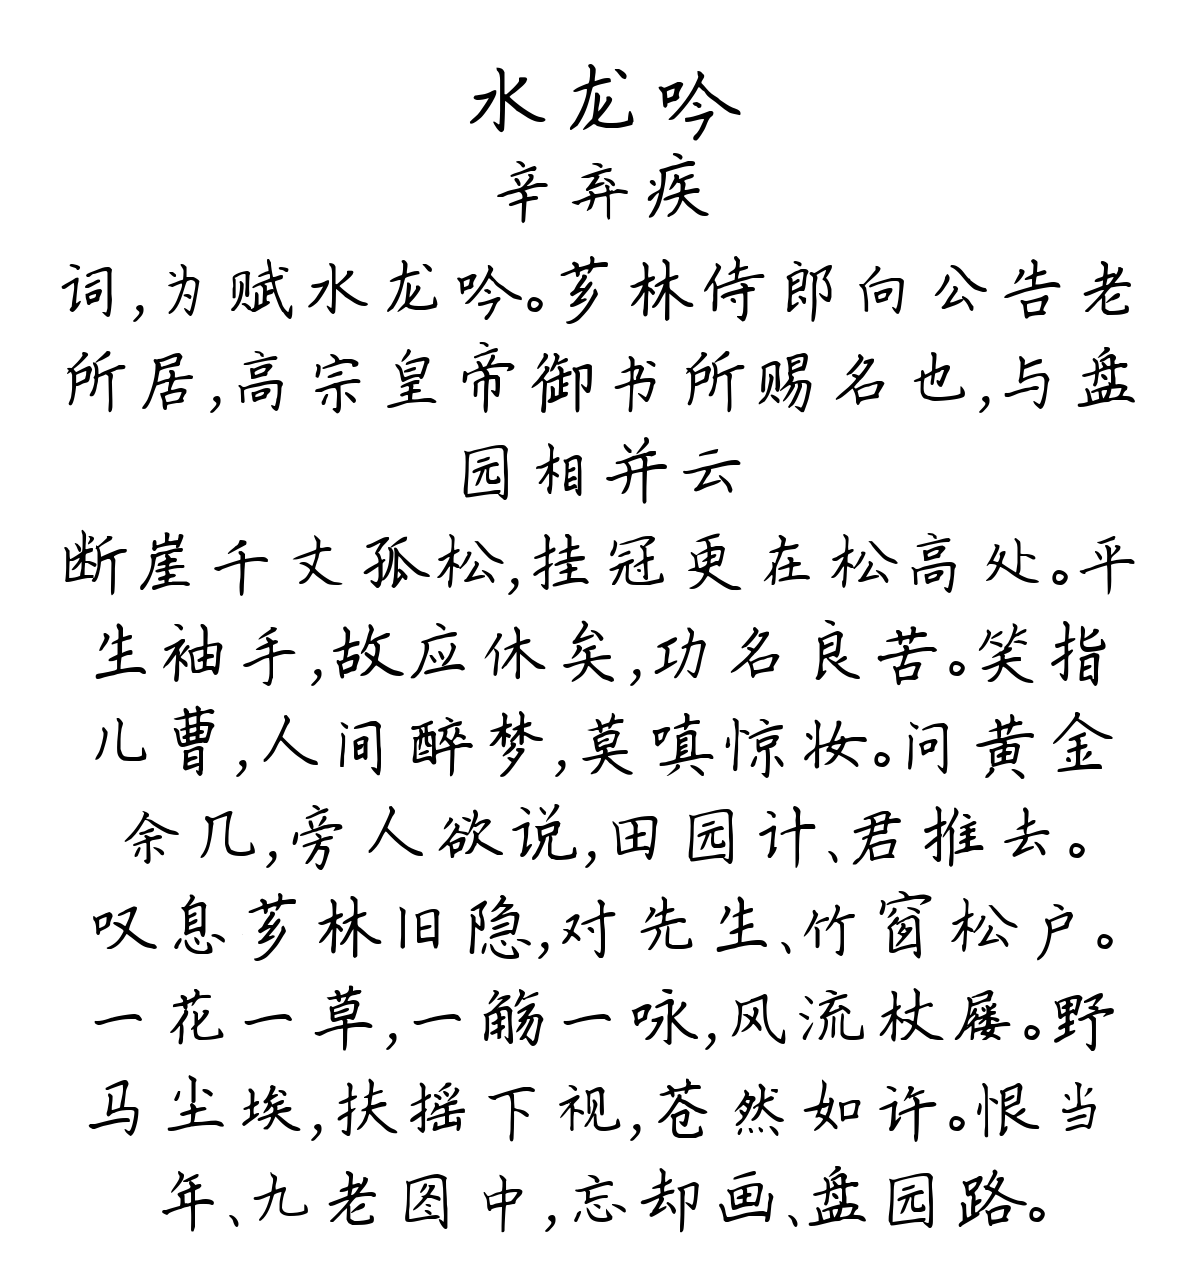 水龙吟
辛弃疾
词,为赋水龙吟。芗林侍郎向公告老
所居,高宗皇帝御书所赐名也,与盘
园相并云
断崖千丈孤松,挂冠更在松高处。平
生袖手,故应休矣,功名良苦。笑指
儿曹,人间醉梦,莫嗔惊妆。问黄金
余几,旁人欲说,田园计、君推去。
叹息芗林旧隐,对先生、竹窗松户。
一花一草,一觞一咏,风流杖屦。野
马尘埃,扶摇下视,苍然如许。恨当
年、九老图中,忘却画、盘园路。